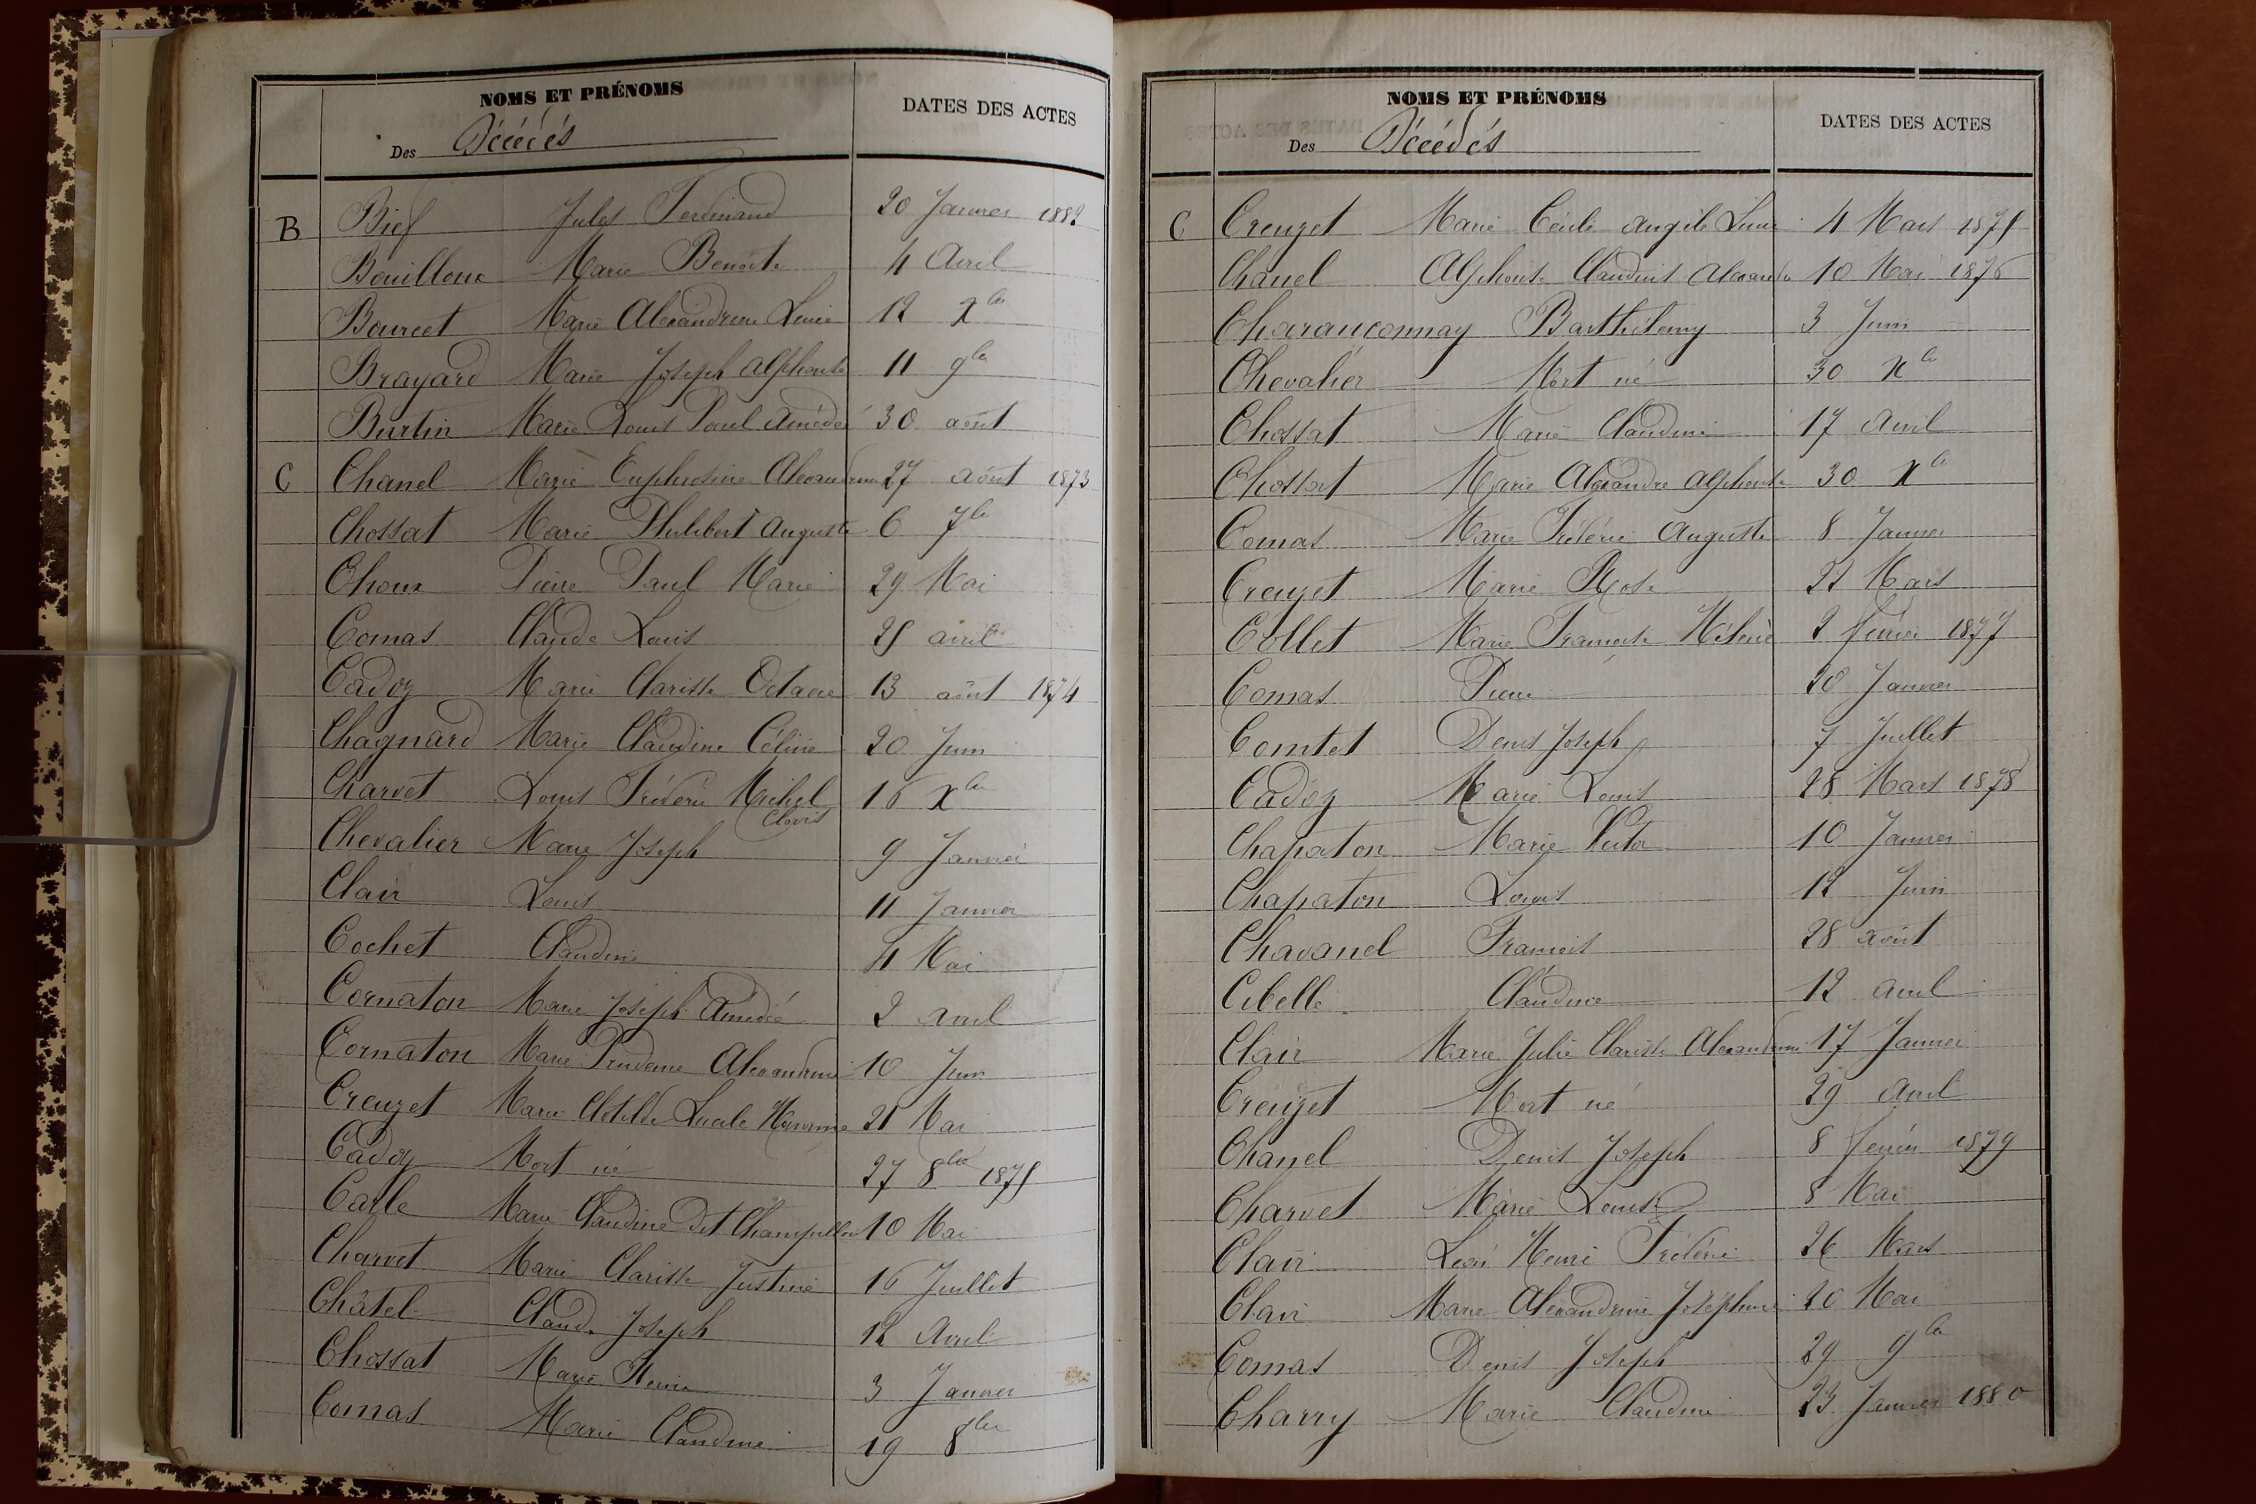 NOMS ET PRÉNOMS
DATES DES ACTES
Des Décédés
B Bief Jules Ferdinand 20 Janvier 1882
Bouilloux Marie Benoite 4 Avril
Bourcet Marie Alexandrine Louise 12 Xbre
Brayard Marie Joseph Alphonse 11 9bre
Burtin Marie Louis Paul Amédée 30 août
C Chanel Marie Euphrosine Alexandrine 27 août 1873
Chossat Marie Philibert Auguste 6 7bre
Choux Pierre Paul Marie 29 Mai
Comas Claude Louis 25 avril
Cadoz Marie Clarisse Octavie 13 août 1874
Chagnard Marie Claudine Céline 20 Juin
Charvet Louis Frédéric Michel Clovis 16 Xbre
Chevalier Marie Joseph 9 Janvier
Clair Louis 11 Janvier
Cochet Claudine 4 Mai
Cornaton Marie Joseph Amédée 2 Avril
Cornaton Marie Prudence Alexandrine 10 Juin
Creuzet Marie Clotilde 21 Mai
Cadoz Mort né 27 8bre 1875
Carle Marie Claudine Det 10 Mai
Charvet Marie Clarisse Justine 16 Juillet
Châtel Claude Joseph 12 Avril
Chossat Marie 3 Janvier
Comas Marie Claudine 19 8bre
NOMS ET PRÉNOMS
DATES DES ACTES
Des Décédés
C Creuzet Marie Cécile Angèle 4 Mars 1875
Chanel Alphonse Claudius Alexandre 10 Mai 1876
Charauconnay Barthélemy 3 Juin
Chevalier Mort né 30 Xbre
Chossat Marie Claudine 17 Avril
Chossat Marie Alexandre Alphonse 30 Xbre
Comas Marie Frédéric Auguste 8 Janvier
Creuzet Marie Rose 22 Mars
Collet Marie Francoise Hélène 2 février 1877
Comas Pierre 20 Janvier
Comtet Denis Joseph 7 Juillet
Cadoz Marie Louis 28 Mars 1878
Chapaton Marie Victor 10 Janvier
Chapaton Louis 12 Juin
Chavanel Francois 28 août
Cibelle Claudine 12 avril
Clair Marie Julie Clarisse Alexandrine 17 Janvier
Creuzet Mort né 29 Avril
Chanel Denis Joseph 8 février 1879
Charvet Marie Louise 8 Mai
Clair Léon Henri Frédéric 26 Mars
Clair Marie Alexandrine Joséphine 20 Mai
Comas Denis Joseph 29 9bre
Charry Marie Claudine 23 Janvier 1880